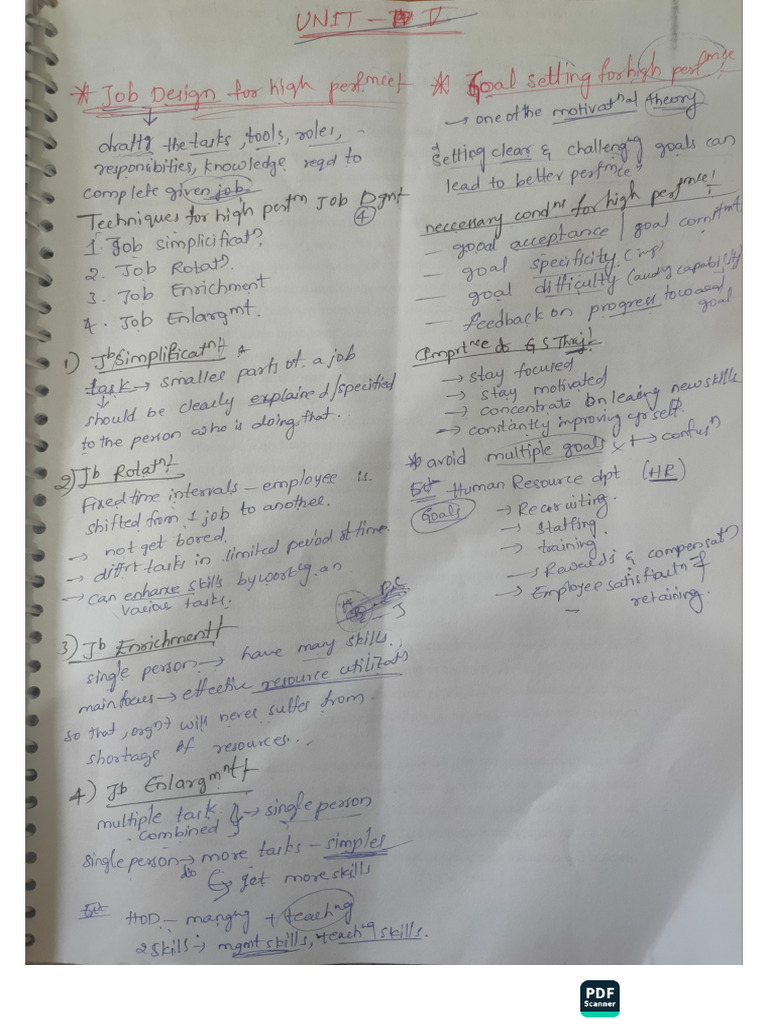 UNIT - V
* Job Design for high perfmce!
drafts the tasks, tools, roles, -
responsibities, knowledge reqd to
complete given job.
Techniques for high perfm Job Dgnt
4
1. Job simplicificat?
2. Job Rotat?
3. Job Enrichment
4. Job Enlargmt.
1) Jb Simplificatnt
task → smaller parts of a job
should be clearly explained/specified
to the person who is doing that...
2) Jb Rotatnt
Fixed time intervals - employee is
shifted from 1 job to another.
→ not get bored.
→ diffrt tasks in limited period of time.
→ can enhance skills by workg on
various tasks.
3) Jb Enrichment
single person → have many skills.
main focus → effective resource utilizatn
so that, orgnt will never suffer from
shortage of resources...
4) Jb Enlargmnt
multiple task } → single person
combined
single person → more tasks - simples
do
get more skills
HOD - mangng + teaching
2 skills → mgmt skills, teachg skills.
* Goal setting for high perfmce!
→ one of the motivatnal theory
"Setting clear & challengng goals can
lead to better perfmce"
neccessary condns for high perfmce!
- goal acceptance / goal comitmt
- goal specificity. (imp)
- goal difficulty
capability
- feedback on progress toward
goal
→ stay focused
→ stay motivated
→ concentrate on leaning new skills
→ constantly improving urself.
* avoid multiple goals x → confusn
Ex Human Resource dpt (HR)
Goals → Recruiting.
→ staffing
→ training
→ Rewards & compensatn
→ Employee satisfactn &
retaining.
PDF
Scanner